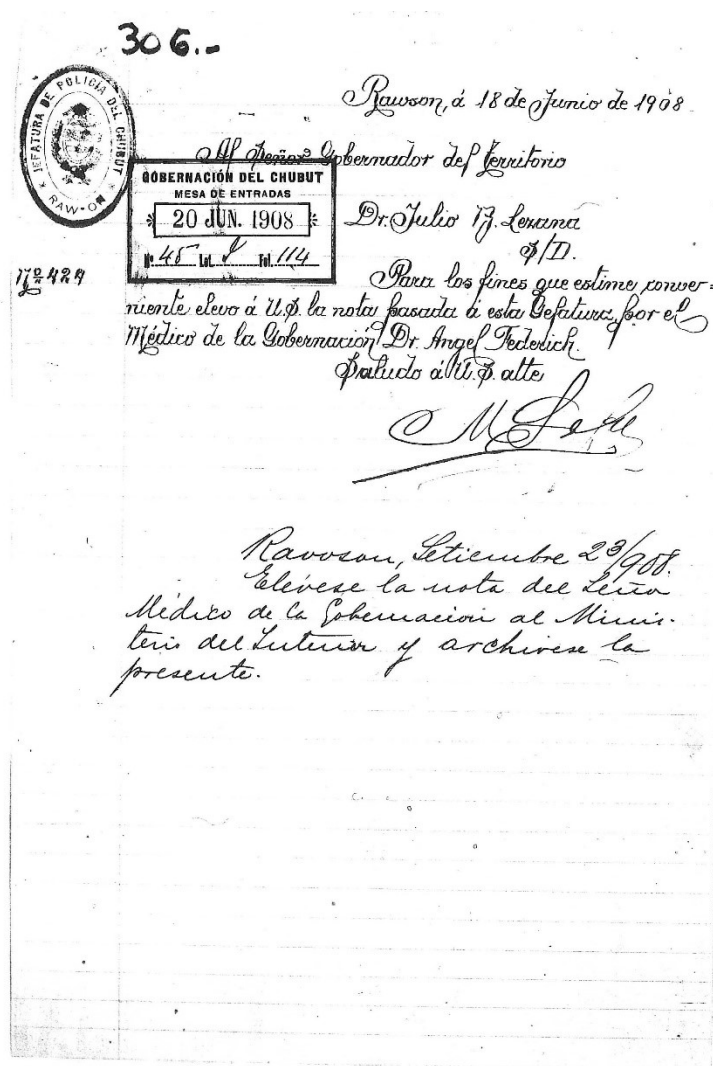 306.-
JEFATURA DE POLICIA DEL CHUBUT
RAWSON
Rawson, á 18 de Junio de 1908
Al Señor Gobernador del Territorio
GOBERNACIÓN DEL CHUBUT
MESA DE ENTRADAS
20 JUN. 1908
Nº 45 Let. Fol. 114
Dr. Julio B. Lezana
S/D.
Nº 424
Para los fines que estime conver=
niente elevo á U.S. la nota pasada á esta Gefatura, por el
Médico de la Gobernación Dr. Angel Federich.
Saludo á U.S. atte
Rawson, Setiembre 23/908.
Elévese la nota del Señor
Médico de la Gobernacion al Minis-
terio del Interior y archivese la
presente.